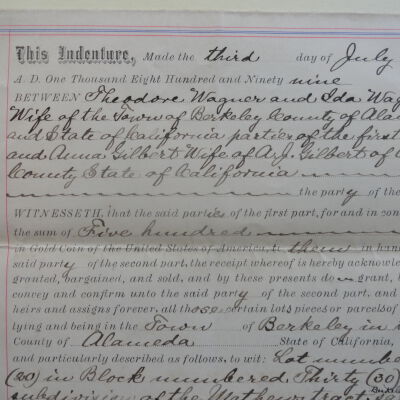 This Indenture, Made the third day of July
A. D. One Thousand Eight Hundred and Ninety nine
BETWEEN Theodore Wagner and Ida Wag
Wife of the Town of Berkeley County of Ala
and State of California parties of the first
and Anna Gilbert Wife of A. J. Gilbert of
County State of California
the party of the
WITNESSETH, that the said parties of the first part, for and in con
the sum of Five hundred
in Gold Coin of the United States of America, to them in han
said party of the second part, the receipt whereof is hereby acknowle
granted, bargained, and sold, and by these presents do grant, b
convey and confirm unto the said party of the second part, and
heirs and assigns forever, all those certain lots pieces or parcels of
lying and being in the Town of Berkeley in
County of Alameda State of California,
and particularly described as follows, to wit: Lot number
(20) in Block numbered Thirty (30)
subdivision of the Mathews tract